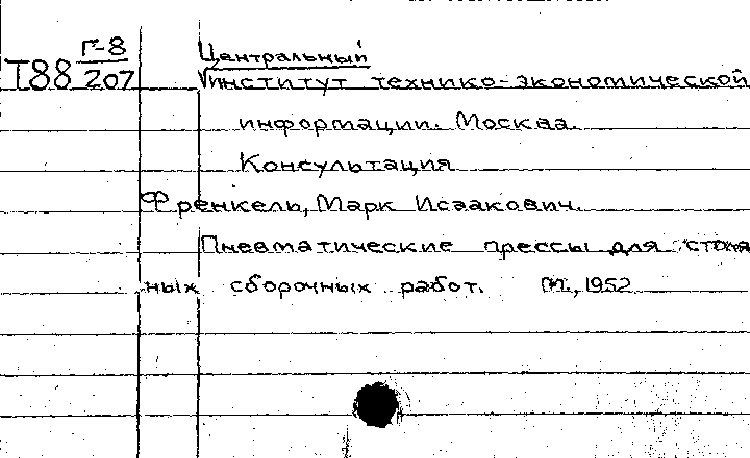 Т88 Г-8/207
Центральный
институт технико-экономической
информации. Москва.
Консультация
Френкель, Марк Исаакович.
Пневматические прессы для
ных сборочных работ. М., 1952